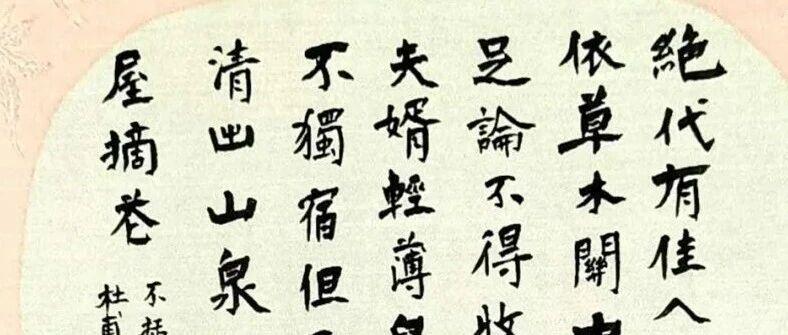 絕代有佳人
依草木關中
足論不得收
夫婿輕薄兒
不獨宿但見
清出山泉
屋摘花
不
杜甫